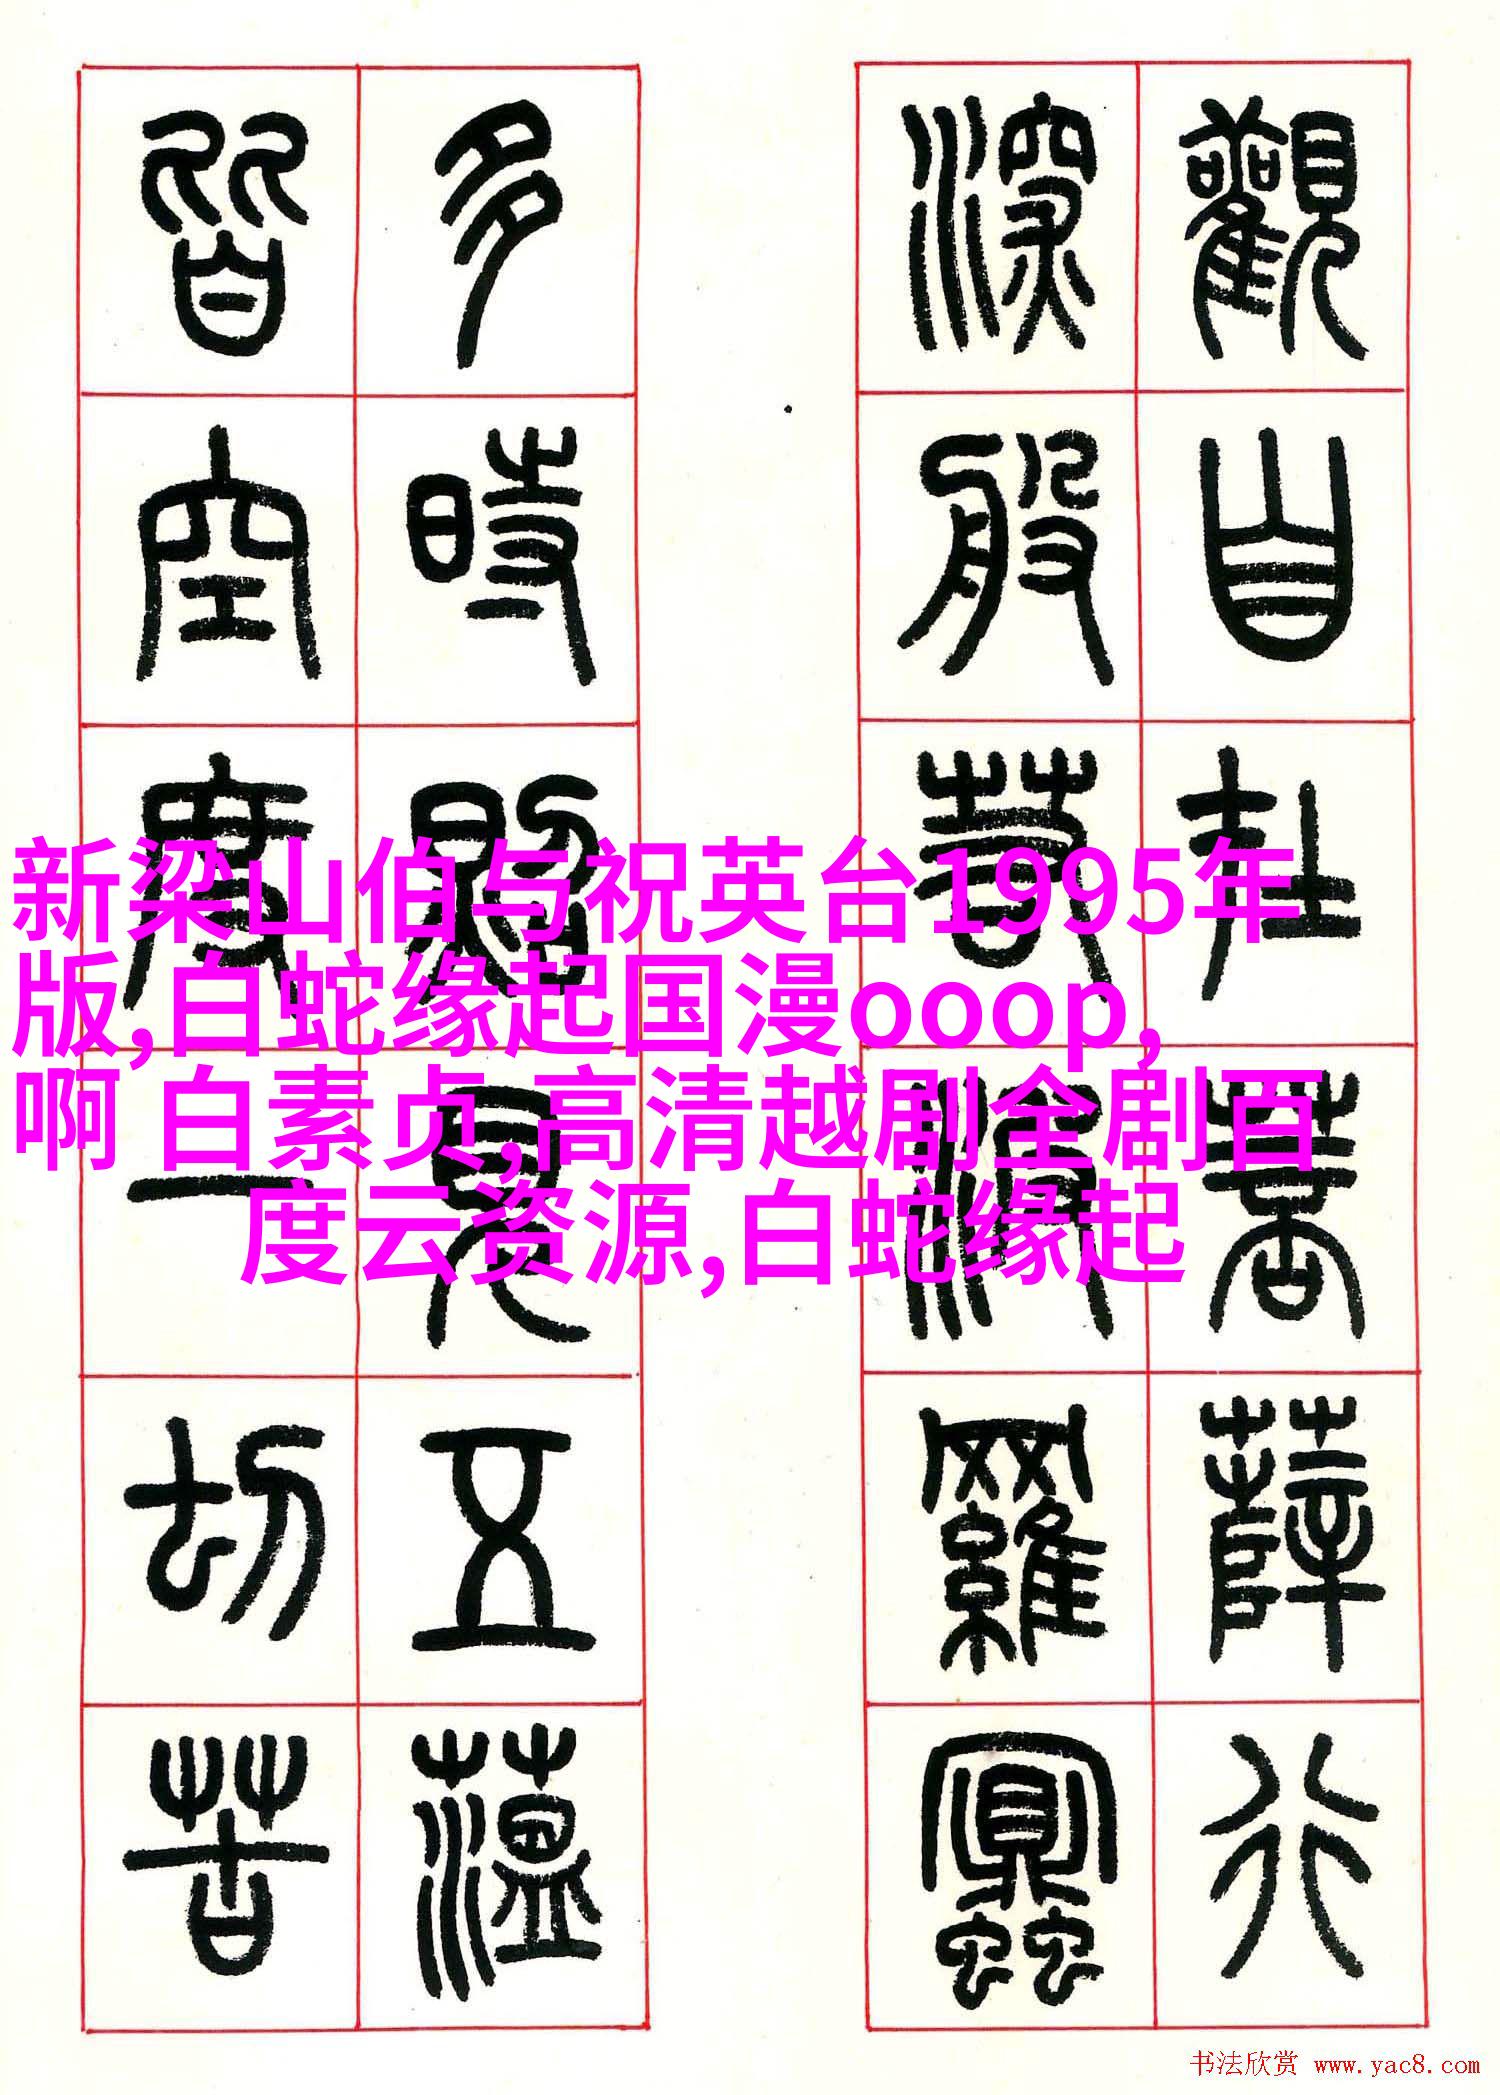 觀自在菩薩行
深般若波羅蜜
多時照見五蘊
皆空度一切苦
新梁山伯与祝英台1995年
版,白蛇缘起国漫ooop,
啊 白素贞,高清越剧全剧百
度云资源,白蛇缘起
书法欣赏 www.yac8.com